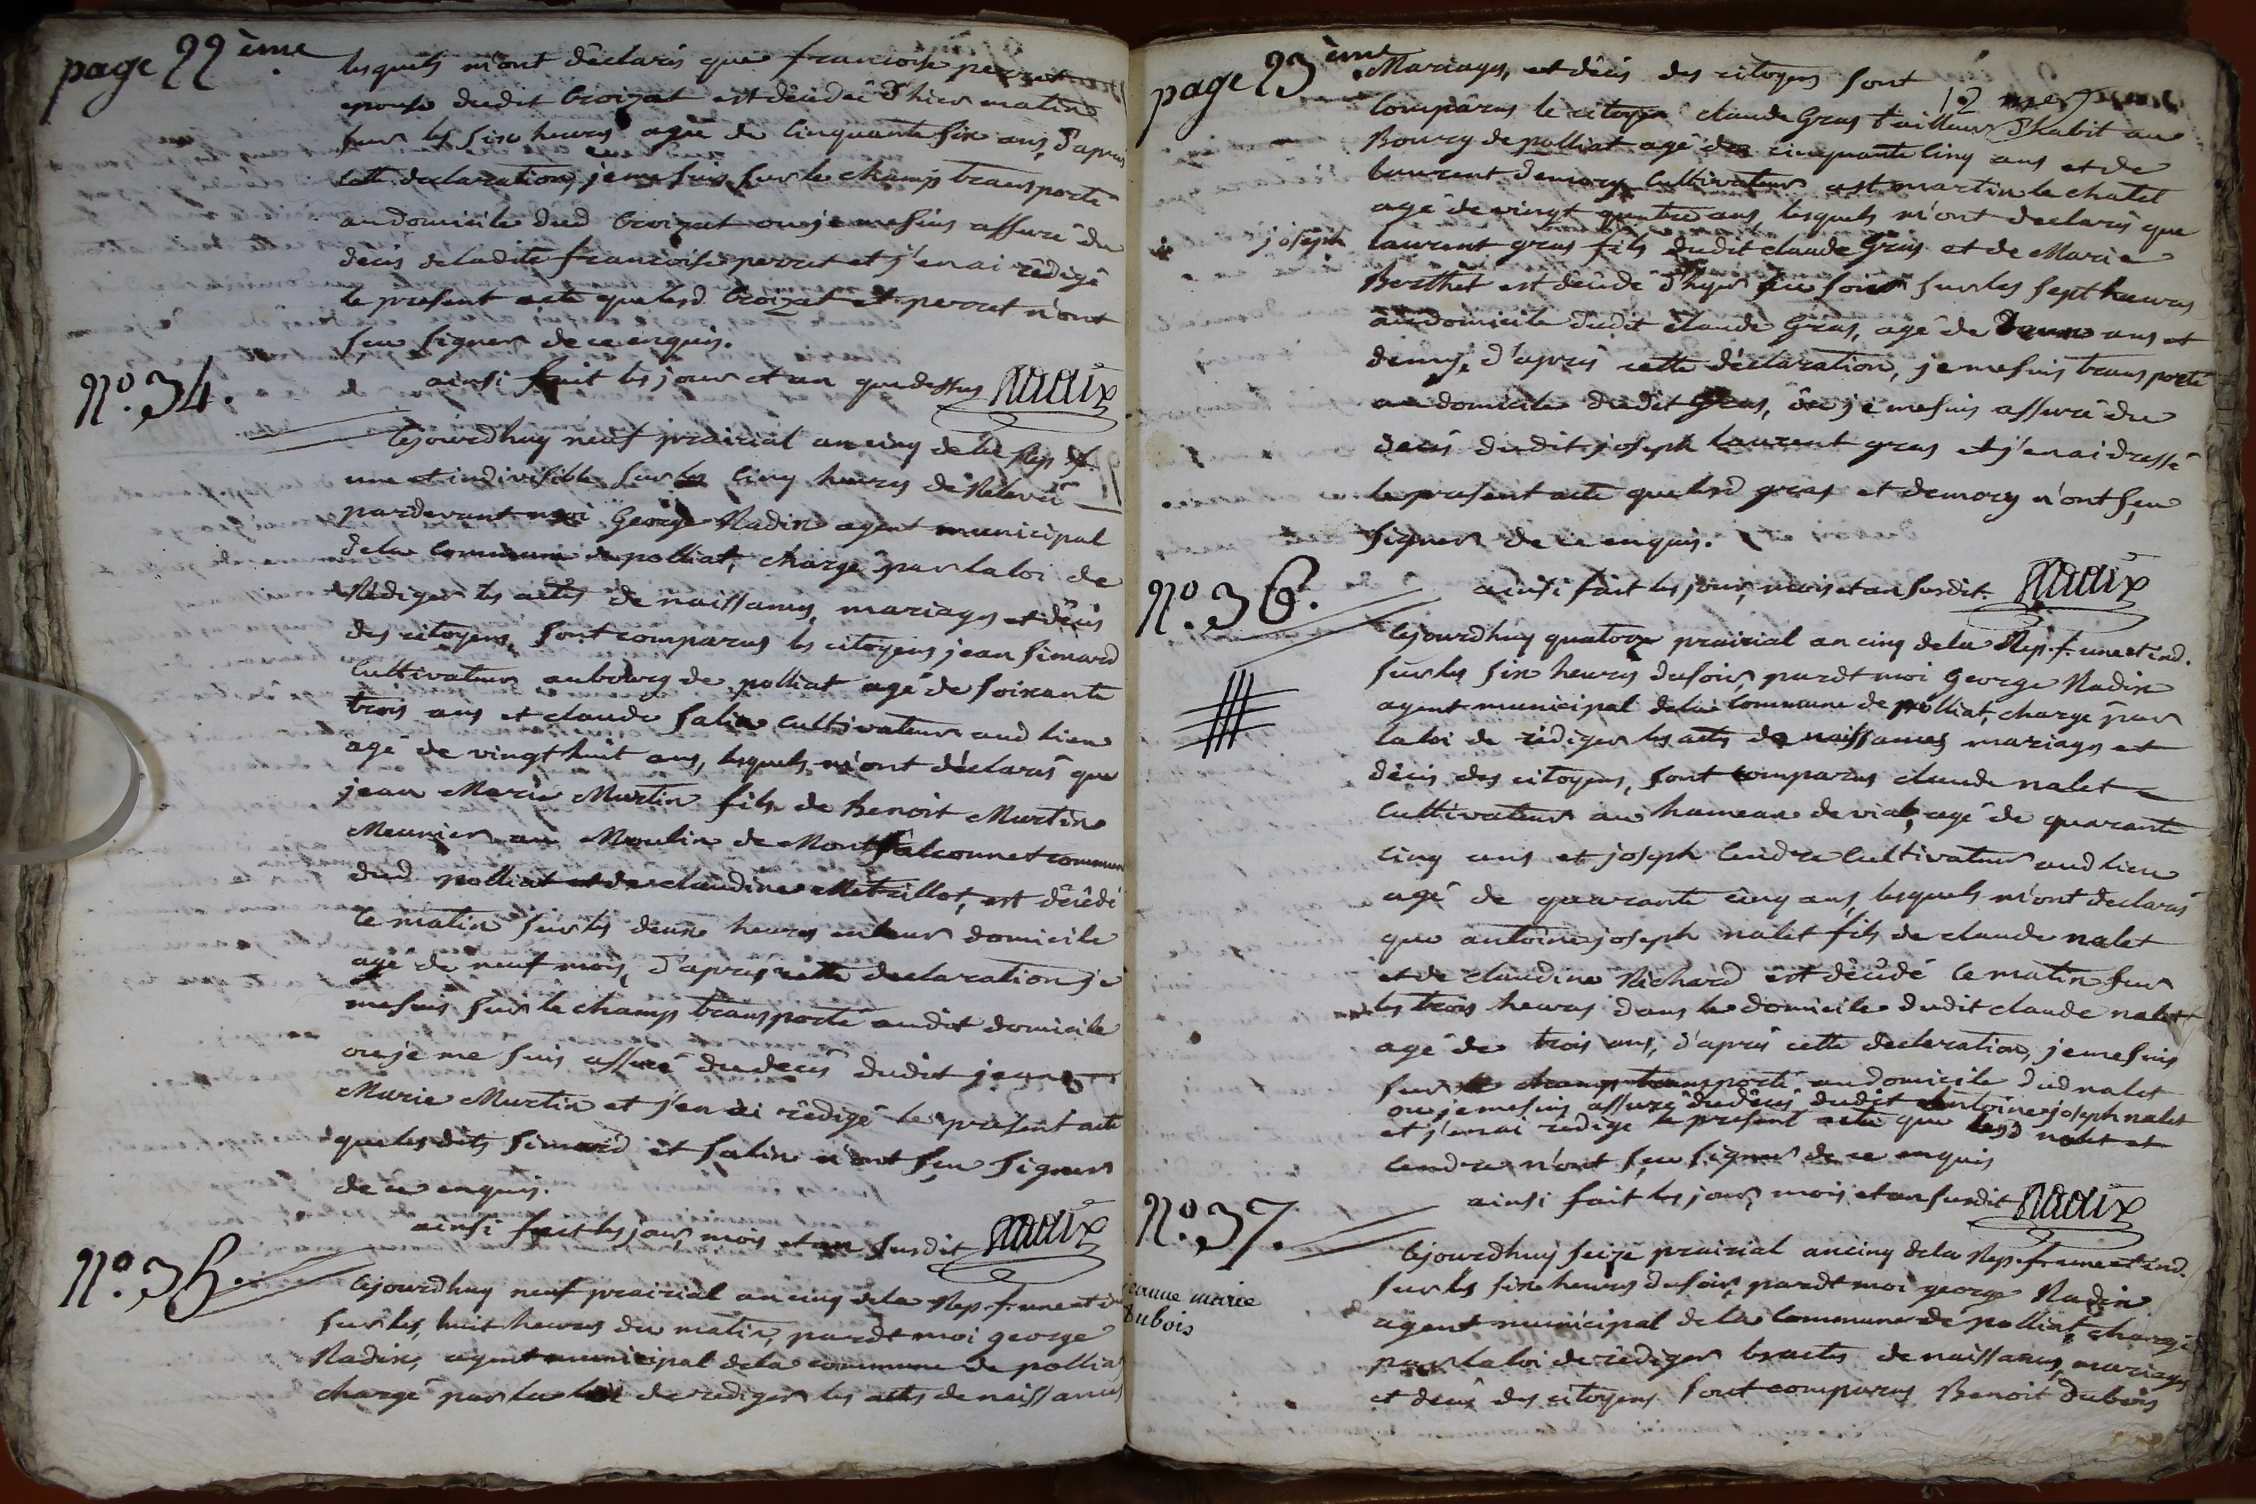 page 22ème
lesquels m'ont déclarés que francoise perret
epouse dudit Croizat est décédée d'hier matin
sur les six heures agée de Cinquante six ans, d'après
cette declaration, je me suis sur le champ transporté
au domicile dud Croizat ou je me suis assuré du
décès de ladite francoise perret et j'en ai rédigé
le present acte que lesd. Croizat et perret n'ont
sçu signer de ce enquis.
ainsi fait les jour et an que dessus Nadix
N.º 34.
Cejourdhuy neuf prairial an cinq de la Rep. f.
une et indivisible sur les Cinq heures de Relevée
pardevant moi George Nadix agent municipal
de la Commune de polliat, chargé par la loi de
Rédiger les actes de naissances, mariages et décès
des citoyens, sont comparus les citoyens jean Simard
Cultivateur au bourg de polliat agé de soixante
trois ans et claude Salin cultivateur aud lieu
agé de vingt huit ans, lesquels m'ont déclarés que
jean Marie Martin fils de Benoit Martin
Meunier au Moulin de Montfalconnet commune
dud polliat et de claudine Metrillot, est décédé
ce matin sur les deux heures en leur domicile
agé de neuf mois, d'après cette declaration je
me suis sur le champ transporté audit domicile
ou je me suis assuré du decès dudit jean
Marie Martin et j'en ai rédigé le present acte
que lesdits Simard et Salin n'ont sçu signer
de ce enquis.
ainsi fait les jour, mois et an susdit Nadix
N.º 35.
Cejourdhuy neuf prairial an cinq de la Rep. f. une et i
sur les huit heures du matin, pardt moi george
Nadix, agent municipal de la commune de polliat
chargé par la loi de rediger les actes de naissances
page 23ème
Mariages, et décès des citoyens sont
Comparus le citoyen claude Gras tailleur d'habit au
Bourg de polliat agé de cinquante Cinq ans et de
laurent demory Cultivateur a st martin le chatel
agé de vingt quatre ans, lesquels m'ont declarés que
joseph laurent gras fils dudit claude Gras et de Marie
Berthet est décédé d'hyer au soir sur les sept heures
au domicile dudit claude Gras, agé de deux ans et
demy, d'après cette déclaration, je me suis transporté
au domicile dudit Gras, ou je me suis assuré du
decès dudit joseph laurent gras et j'en ai dressé
le present acte que lesd gras et demory n'ont sçu
signer de ce enquis.
ainsi fait les jour, mois et an susdit. Nadix
N.º 36.
Cejourdhuy quatorze prairial an cinq de la Rep. f. une et ind.
sur les six heures du soir, pardt moi George Nadix
agent municipal de la Commune de polliat, chargé par
la loi de rédiger les actes de naissances mariages et
décès des citoyens, sont comparus claude nalet
Cultivateur au hameau de vial, agé de quarante
cinq ans et joseph Cendre Cultivateur aud lieu
agé de quarante cinq ans, lesquels m'ont declarés
que antoine joseph nalet fils de claude nalet
et de claudine Richard est décédé ce matin sur
les trois heures dans le domicile dudit claude nalet
agé de trois ans, d'après cette declaration, je me suis
sur le champ transporté au domicile dud nalet
ou je me suis assuré du décès dudit Antoine joseph nalet
et j'en ai rédigé le présent acte que lesd nalet et
Cendre n'ont sçu signer de ce enquis
ainsi fait les jour, mois et an susdit Nadix
N.º 37.
jeanne marie
Dubois
Cejourdhuy seize prairial an cinq de la Rep. fr. une et ind.
sur les six heures du soir, pardt moi george Nadix
agent municipal de la Commune de polliat, chargé
par la loi de rédiger les actes de naissances, mariages
et decès des citoyens sont comparus Benoit Dubois